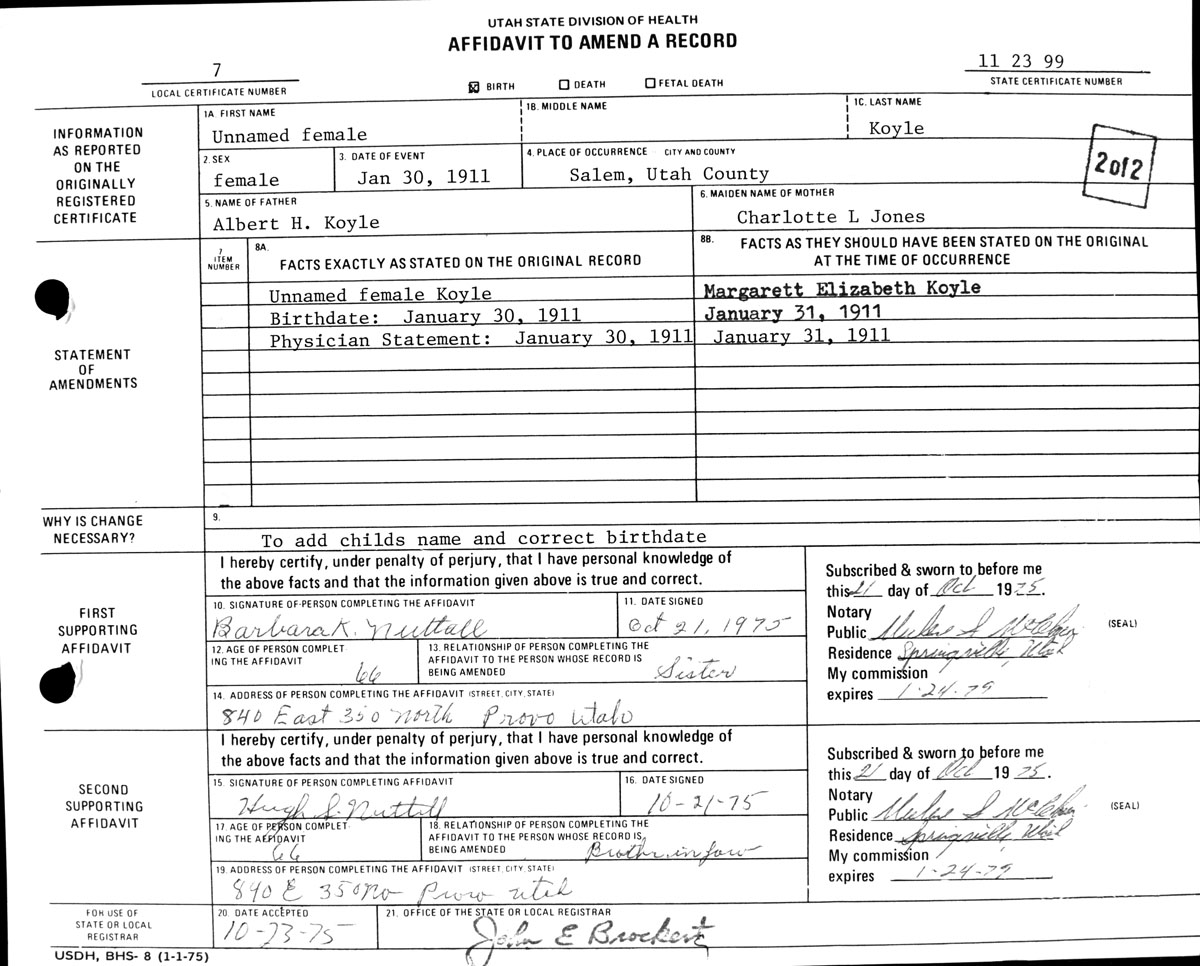 UTAH STATE DIVISION OF HEALTH
AFFIDAVIT TO AMEND A RECORD
7
LOCAL CERTIFICATE NUMBER
☒ BIRTH ☐ DEATH ☐ FETAL DEATH
11 23 99
STATE CERTIFICATE NUMBER
INFORMATION
AS REPORTED
ON THE
ORIGINALLY
REGISTERED
CERTIFICATE
1A. FIRST NAME
Unnamed female
1B. MIDDLE NAME
1C. LAST NAME
Koyle
2. SEX
female
3. DATE OF EVENT
Jan 30, 1911
4. PLACE OF OCCURRENCE CITY AND COUNTY
Salem, Utah County
2 of 2
5. NAME OF FATHER
Albert H. Koyle
6. MAIDEN NAME OF MOTHER
Charlotte L Jones
STATEMENT
OF
AMENDMENTS
7
ITEM
NUMBER
8A.
FACTS EXACTLY AS STATED ON THE ORIGINAL RECORD
8B. FACTS AS THEY SHOULD HAVE BEEN STATED ON THE ORIGINAL
AT THE TIME OF OCCURRENCE
Unnamed female Koyle Margarett Elizabeth Koyle
Birthdate: January 30, 1911 January 31, 1911
Physician Statement: January 30, 1911 January 31, 1911
WHY IS CHANGE
NECESSARY?
9.
To add childs name and correct birthdate
FIRST
SUPPORTING
AFFIDAVIT
I hereby certify, under penalty of perjury, that I have personal knowledge of
the above facts and that the information given above is true and correct.
10. SIGNATURE OF PERSON COMPLETING THE AFFIDAVIT
Barbara K. Nuttall
11. DATE SIGNED
Oct 21, 1975
12. AGE OF PERSON COMPLET
ING THE AFFIDAVIT
66
13. RELATIONSHIP OF PERSON COMPLETING THE
AFFIDAVIT TO THE PERSON WHOSE RECORD IS
BEING AMENDED
Sister
14. ADDRESS OF PERSON COMPLETING THE AFFIDAVIT (STREET, CITY, STATE)
840 East 350 North Provo Utah
Subscribed & sworn to before me
this 21 day of Oct 1975.
Notary
Public
(SEAL)
Residence Springville, Utah
My commission
expires 1-24-79
SECOND
SUPPORTING
AFFIDAVIT
I hereby certify, under penalty of perjury, that I have personal knowledge of
the above facts and that the information given above is true and correct.
15. SIGNATURE OF PERSON COMPLETING AFFIDAVIT
Hugh S. Nuttall
16. DATE SIGNED
10-21-75
17. AGE OF PERSON COMPLET
ING THE AFFIDAVIT
66
18. RELATIONSHIP OF PERSON COMPLETING THE
AFFIDAVIT TO THE PERSON WHOSE RECORD IS
BEING AMENDED
Brother in law
19. ADDRESS OF PERSON COMPLETING THE AFFIDAVIT (STREET, CITY, STATE)
840 E 350 No Provo Utah
Subscribed & sworn to before me
this 21 day of Oct 1975.
Notary
Public
(SEAL)
Residence Springville, Utah
My commission
expires 1-24-79
FOR USE OF
STATE OR LOCAL
REGISTRAR
20. DATE ACCEPTED
10-23-75
21. OFFICE OF THE STATE OR LOCAL REGISTRAR
John E Brockert
USDH, BHS- 8 (1-1-75)